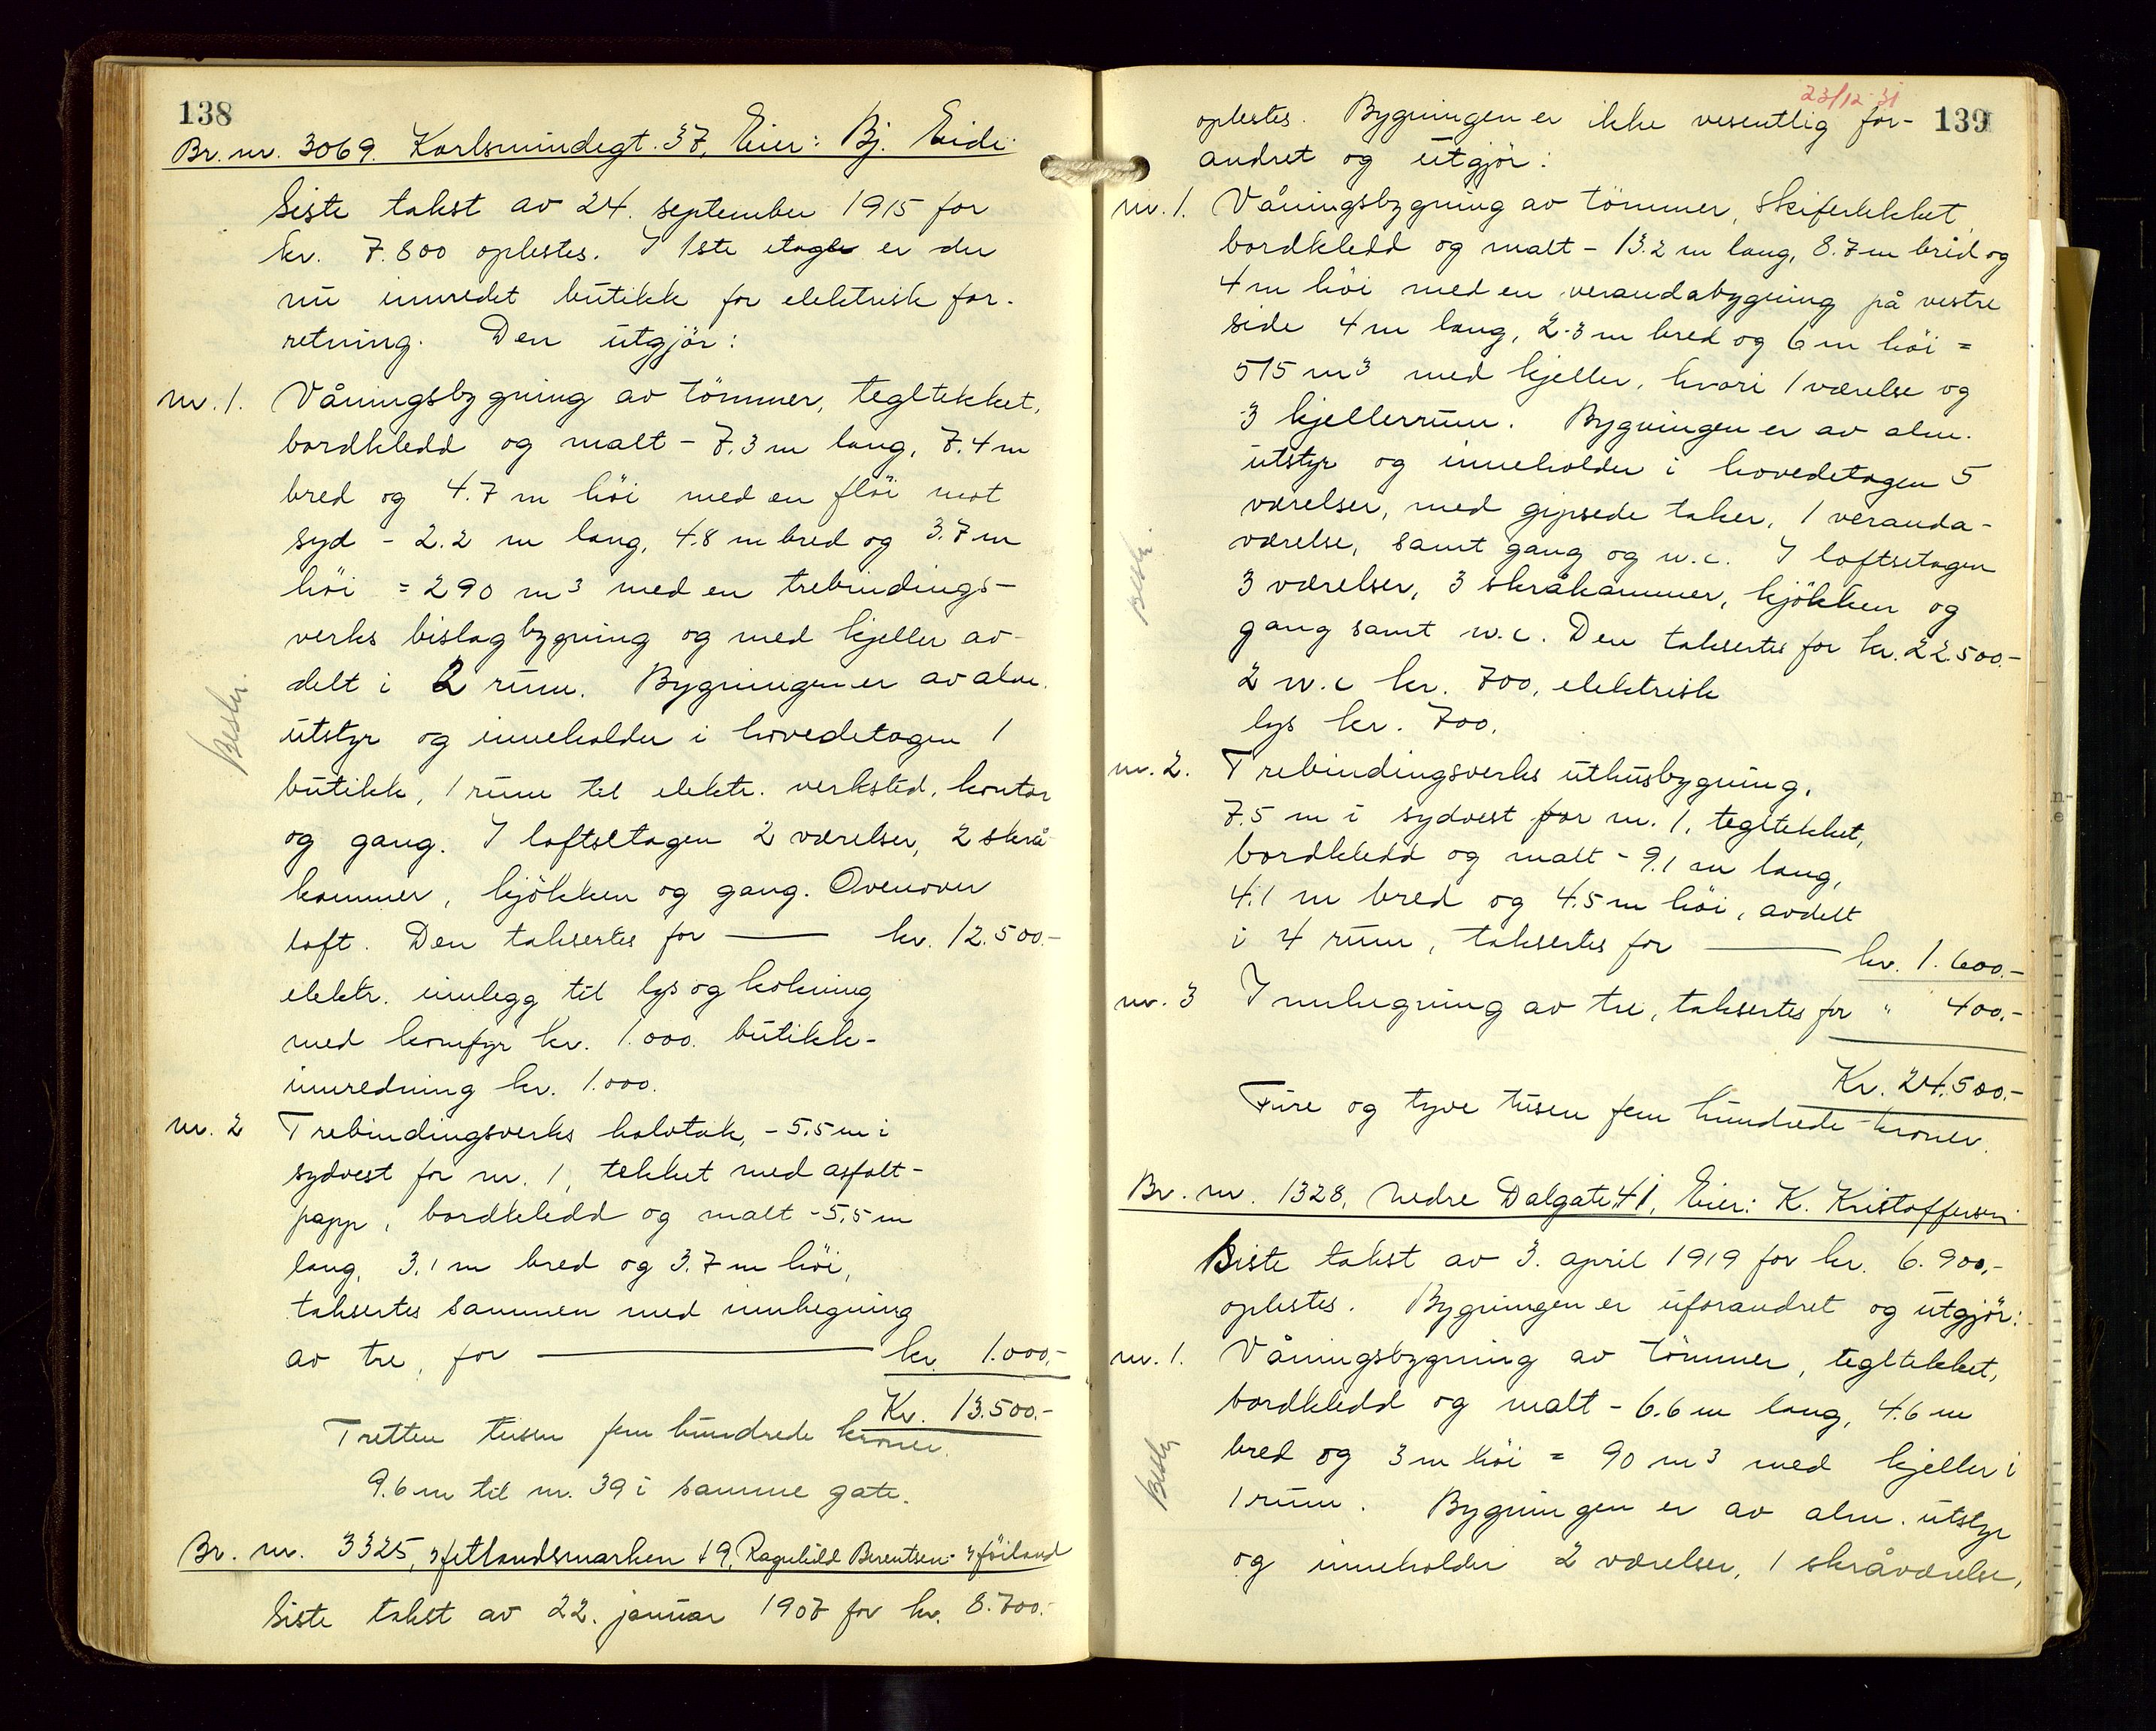 138
Br. nr. 3069. Karlsmindegt. 37, Eier: Bj. Eide.
Siste takst av 24. september 1915 for
kr. 7.800 oplestes. I 1ste etage er der
nu innredet butikk for elektrisk for-
retning. Den utgjör:
nr. 1. Våningsbygning av tömmer, tegltekket,
bordkledd og malt - 7.3 m lang, 7.4 m
bred og 4.7 m höi med en flöi mot
syd - 2.2 m lang, 4.8 m bred og 3.7 m
höi = 290 m3 med en trebindings-
verks bislagbygning og med kjeller av-
delt i 2 rum. Bygningen er av alm.
utstyr og inneholder i hovedetagen 1
butikk, 1 rum til elektr. verksted, kontor
og gang. I loftsetagen 2 værelser, 2 skrå-
kammer, kjökken og gang. Ovenover
loft. Den taksertes for — kr. 12.500.-
elektr. innlegg til lys og kokning
med komfyr kr. 1.000. butikk-
innredning kr. 1.000.
nr. 2 Trebindingsverks halvtak, - 5.5 m i
sydvest for nr. 1, tekket med asfalt-
papp, bordkledd og malt - 5.5 m
lang, 3.1 m bred og 3.7 m höi,
taksertes sammen med innhegning
av tre, for — kr. 1.000.-
Kr. 13.500.-
Tretten tusen fem hundrede kroner.
9.6 m til nr. 39 i samme gate.
Br. nr. 3325, Hetlandsmarken 49, Ragnhild Berentsen-Höiland
Siste takst av 22. januar 1907 for kr. 8.700.-
Beskr.
23/12 31
139
oplestes. Bygningen er ikke vesentlig for-
andret og utgjör:
nr. 1. Våningsbygning av tömmer, skifertekket,
bordkledd og malt - 13.2 m lang, 8.7 m bred og
4 m höi med en verandabygning på vestre
side 4 m lang, 2.3 m bred og 6 m höi =
515 m3 med kjeller, hvori 1 værelse og
3 kjellerrum. Bygningen er av alm.
utstyr og inneholder i hovedetagen 5
værelser, med gipsede taker, 1 veranda-
værelse, samt gang og w.c. I loftsetagen
3 værelser, 3 skråkammer, kjökken og
gang samt w.c. Den taksertes for kr. 22.500.-
2 w.c kr. 700, elektrisk
lys kr. 700.
nr. 2. Trebindingsverks uthusbygning,
7.5 m i sydvest for nr. 1, tegltekket,
bordkledd og malt - 9.1 m lang,
4.1 m bred og 4.5 m höi, avdelt
i 4 rum, taksertes for — kr. 1.600.-
nr. 3 Innhegning av tre, taksertes for " 400.-
Kr. 24.500.-
Fire og tyve tusen fem hundrede kroner.
Beskr.
Br. nr. 1328, Nedre Dalgate 41, Eier: K. Kristoffersen
Siste takst av 3. april 1919 for kr. 6.900.-
oplestes. Bygningen er uforandret og utgjör:
nr. 1. Våningsbygning av tömmer, tegltekket,
bordkledd og malt - 6.6 m lang, 4.6 m
bred og 3 m höi = 90 m3 med kjeller i
1 rum. Bygningen er av alm. utstyr
og inneholder 2 værelser, 1 skråværelse,
Beskr